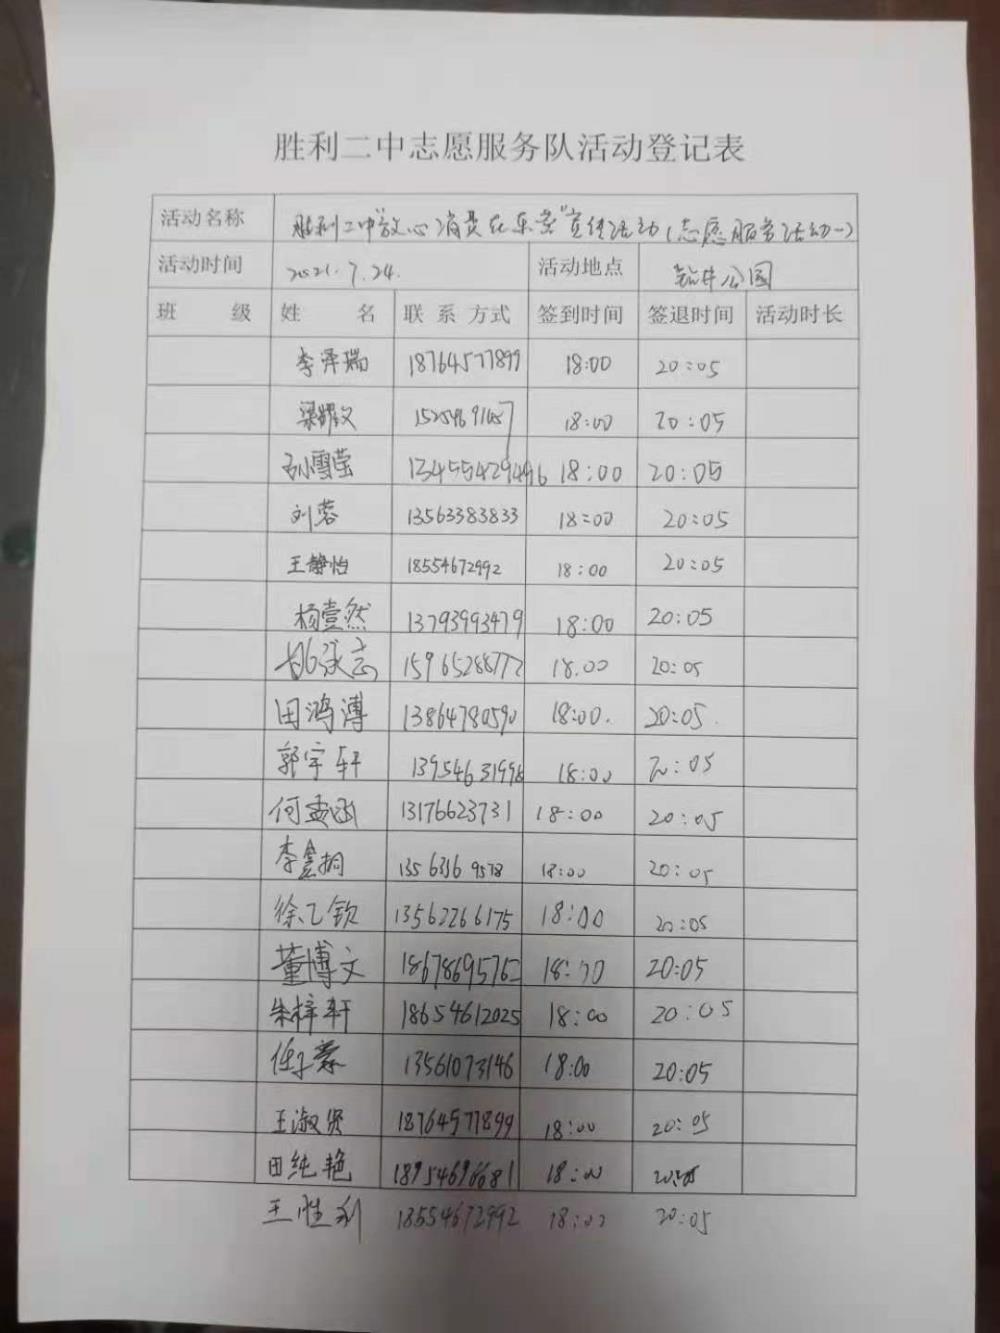 胜利二中志愿服务队活动登记表
活动名称 胜利二中"放心消费在东营"宣传活动(志愿服务活动一)
活动时间 2021.7.24. 活动地点 钻井公园
班 级 姓 名 联 系 方式 签到时间 签退时间 活动时长
李泽瑞 18764577899 18:00 20:05
梁耀文 18:00 20:05
孙雪莹 13455429496 18:00 20:05
刘蓉 13563383833 18:00 20:05
王静怡 18554672992 18:00 20:05
杨壹然 13793993479 18:00 20:05
15965288772 18.00 20:05
田鸿溥 13864780590 18:00. 20:05.
郭宇轩 13954631998 18:00 20:05
何孟函 13176623731 18:00 20:05
李鑫桐 13563169578 18:00 20:05
徐乙钦 13562266175 18:00 20:05
董博文 18678695762 18:00 20:05
朱梓轩 18654612025 18:00 20:05
任子蓁 13561073146 18:00 20:05
王淑贤 18764577899 18:00 20:05
田纯艳 18954696681 18:00
王胜利 18554672992 18:00 20:05